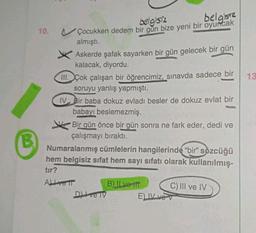 belgisiz belgisiz
10. I. Çocukken dedem bir gün bize yeni bir oyuncak
almıştı.
II. Askerde şafak sayarken bir gün gelecek bir gün
kalacak, diyordu.
III. Çok çalışan bir öğrencimiz, sınavda sadece bir
soruyu yanlış yapmıştı.
13
IV. Bir baba dokuz evladı besler de dokuz evlat bir
babayı beslemezmiş.
V. Bir gün önce bir gün sonra ne fark eder, dedi ve
çalışmayı bıraktı.
B.
Numaralanmış cümlelerin hangilerinde "bir" sözcüğü
hem belgisiz sıfat hem sayı sıfatı olarak kullanılmış-
tır?
A) I ve II B) II ve III C) III ve IV
D) I ve IV E) IV ve V